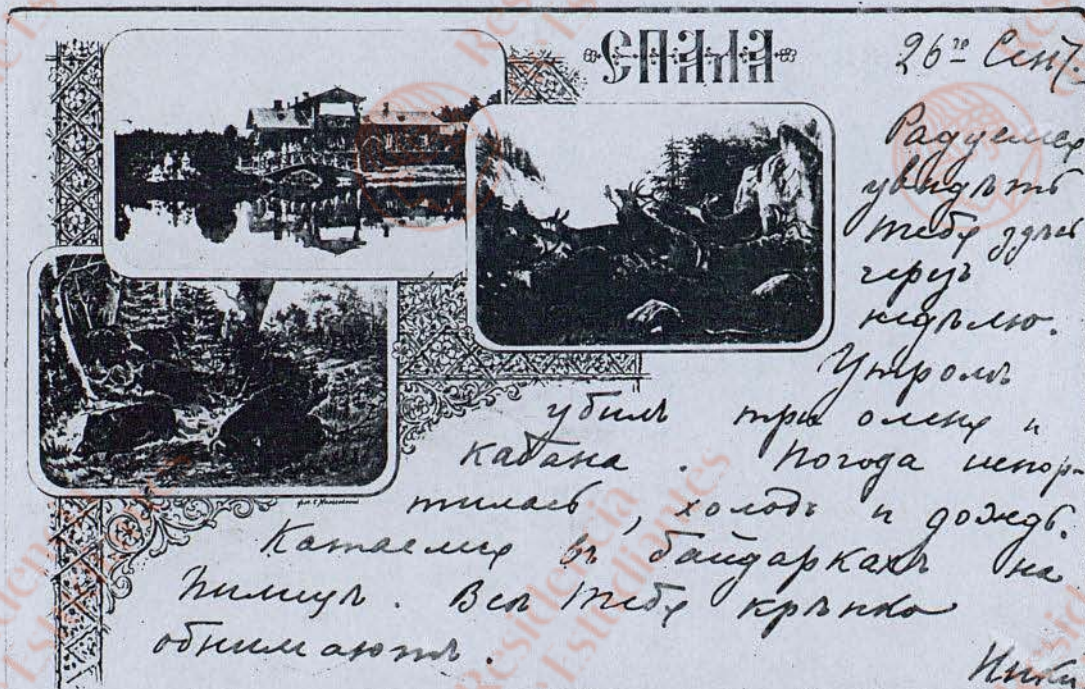 СПАЛА
26го Сент.
Радуемся
увидѣть
тебя здѣсь
черезъ
недѣлю.
Утромъ
убилъ три оленя и
кабана. Погода испор-
тилась, холодъ и дождь.
Катаемся въ байдаркахъ на
Пилицѣ. Всѣ тебя крѣпко
обнимаютъ.
Ники
Residencia
Estudiantes